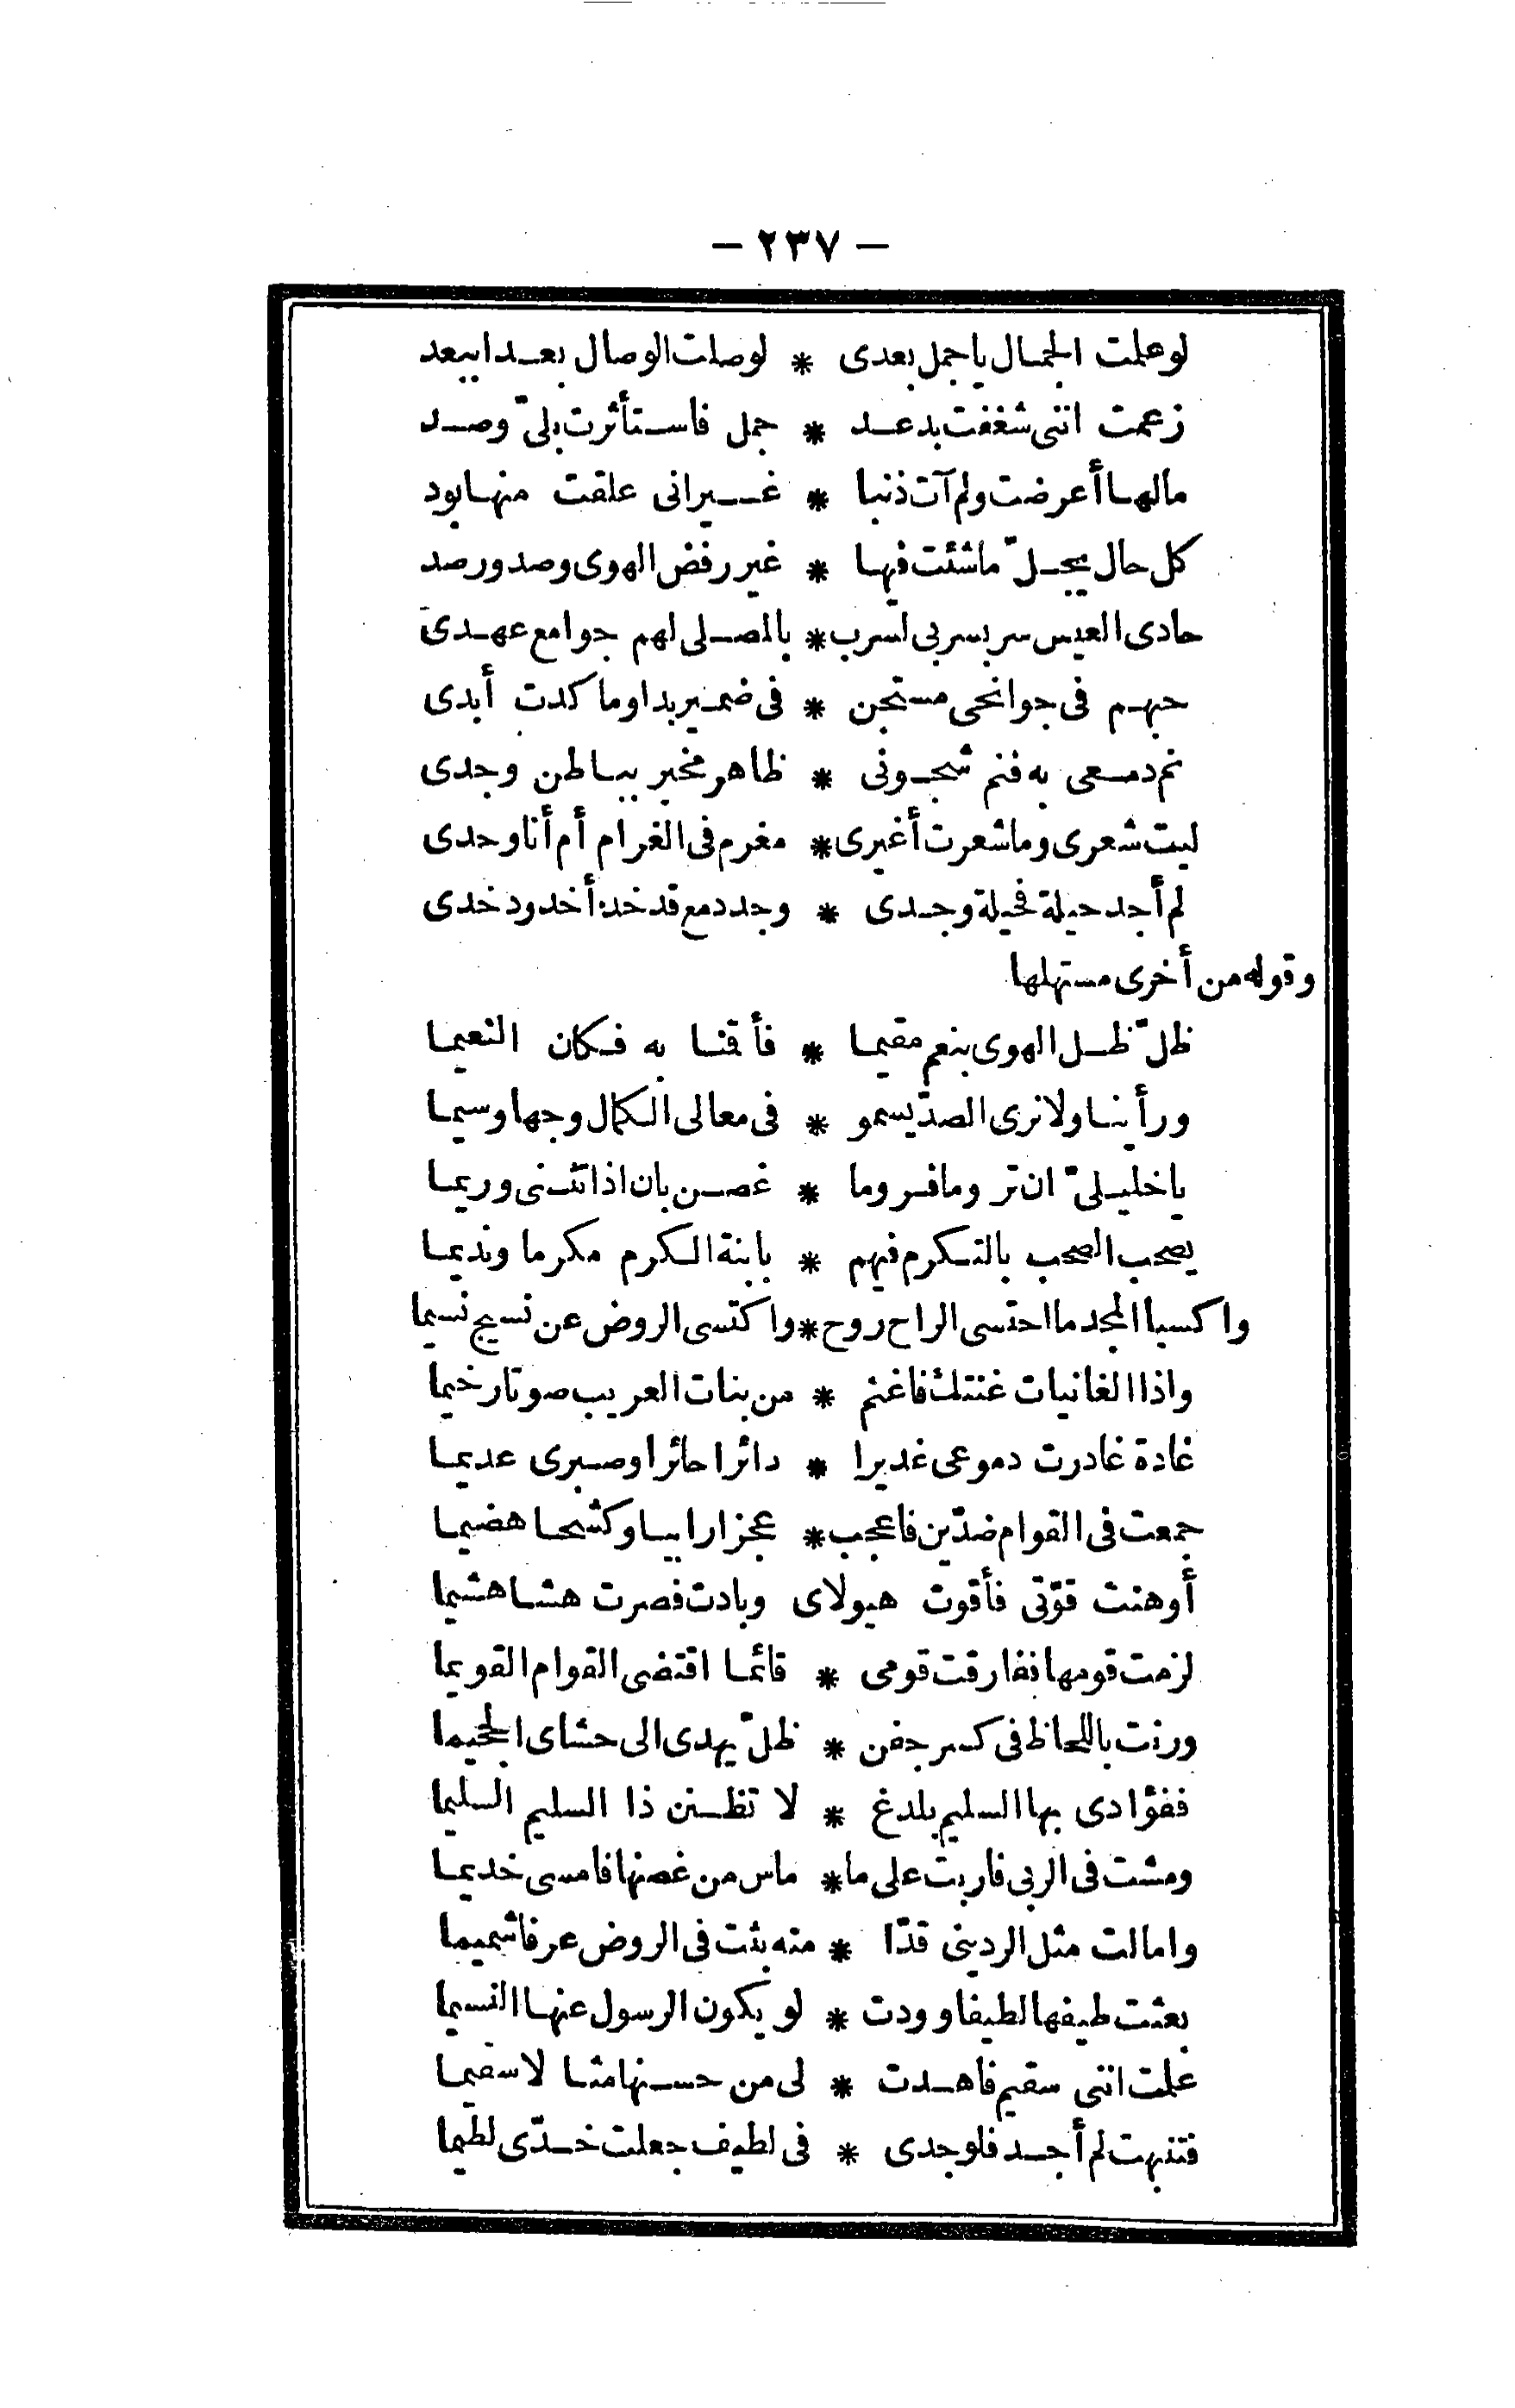 — ٢٣٧ —
لو علمت الجمال يا جمل بعدى * لوصلت الوصال بعدا ببعد
زعمت اننى شغفت بدعد * جمل فاستأثرت بلىّ وصد
مالها أعرضت ولم آت ذنبا * غير انى علقت منها بود
كل حال يحلّ ما شئت فيها * غير رفض الهوى وصد ورصد
حادى العيس سر بسربى لسرب * بالمصلى لهم جوامع عهدى
حبهم فى جوانحى مستجن * فى ضمير بدا وما كدت أبدى
نم دمعى به فنم شجونى * ظاهر مخبر بباطن وجدى
ليت شعرى وما شعرت أغيرى * مغرم فى الغرام أم أنا وحدى
لم أجد حيلة فحيلة وجدى * وجد دمع قد خد أخدود خدى
وقوله من أخرى مستهلها
ظلّ ظل الهوى بنعم مقيما * فأقنا به فكان النعيما
ورأينا ولا نرى الصدّ يسمو * فى معالى الكمال وجها وسيما
يا خليلىّ ان تروما فروما * غصن بان اذا تثنى وريما
يصحب الصحب بالتكرم فيهم * بابنة الكرم مكرما ونديما
واكسبا المجد ما احتسى الراح روح * واكتسى الروض عن نسيج نسيما
واذا الغانيات غنتك فاغنم * من بنات العريب صوتا رخيما
غادة غادرت دموعى غديرا * دائرا حائرا وصبرى عديما
جمعت فى القوام ضدّين فاعجب * عجزا رابيا وكشحا هضيما
أوهنت قوّتى فأقوت هيولاى وبادت فصرت هشا هشيما
لزمت قومها ففارقت قومى * قائما اقتضى القوام القويما
ورنت باللحاظ فى كسر جفن * ظلّ يهدى الى حشاى الجحيما
ففؤادى بها السليم بلدغ * لا تظنن ذا السليم السليما
ومشت فى الربى فاربت على ما * ماس من غصنها فامسى خديما
وامالت مثل الردينى قدّا * منه بثت فى الروض عرفا شميما
بعثت طيفها لطيفا وودت * لو يكون الرسول عنها النسيما
علمت اننى سقيم فاهدت * لى من حسنها مثالا سقيما
فتنبهت لم أجد فلوجدى * فى لطيف جعلت خدّى لطيما